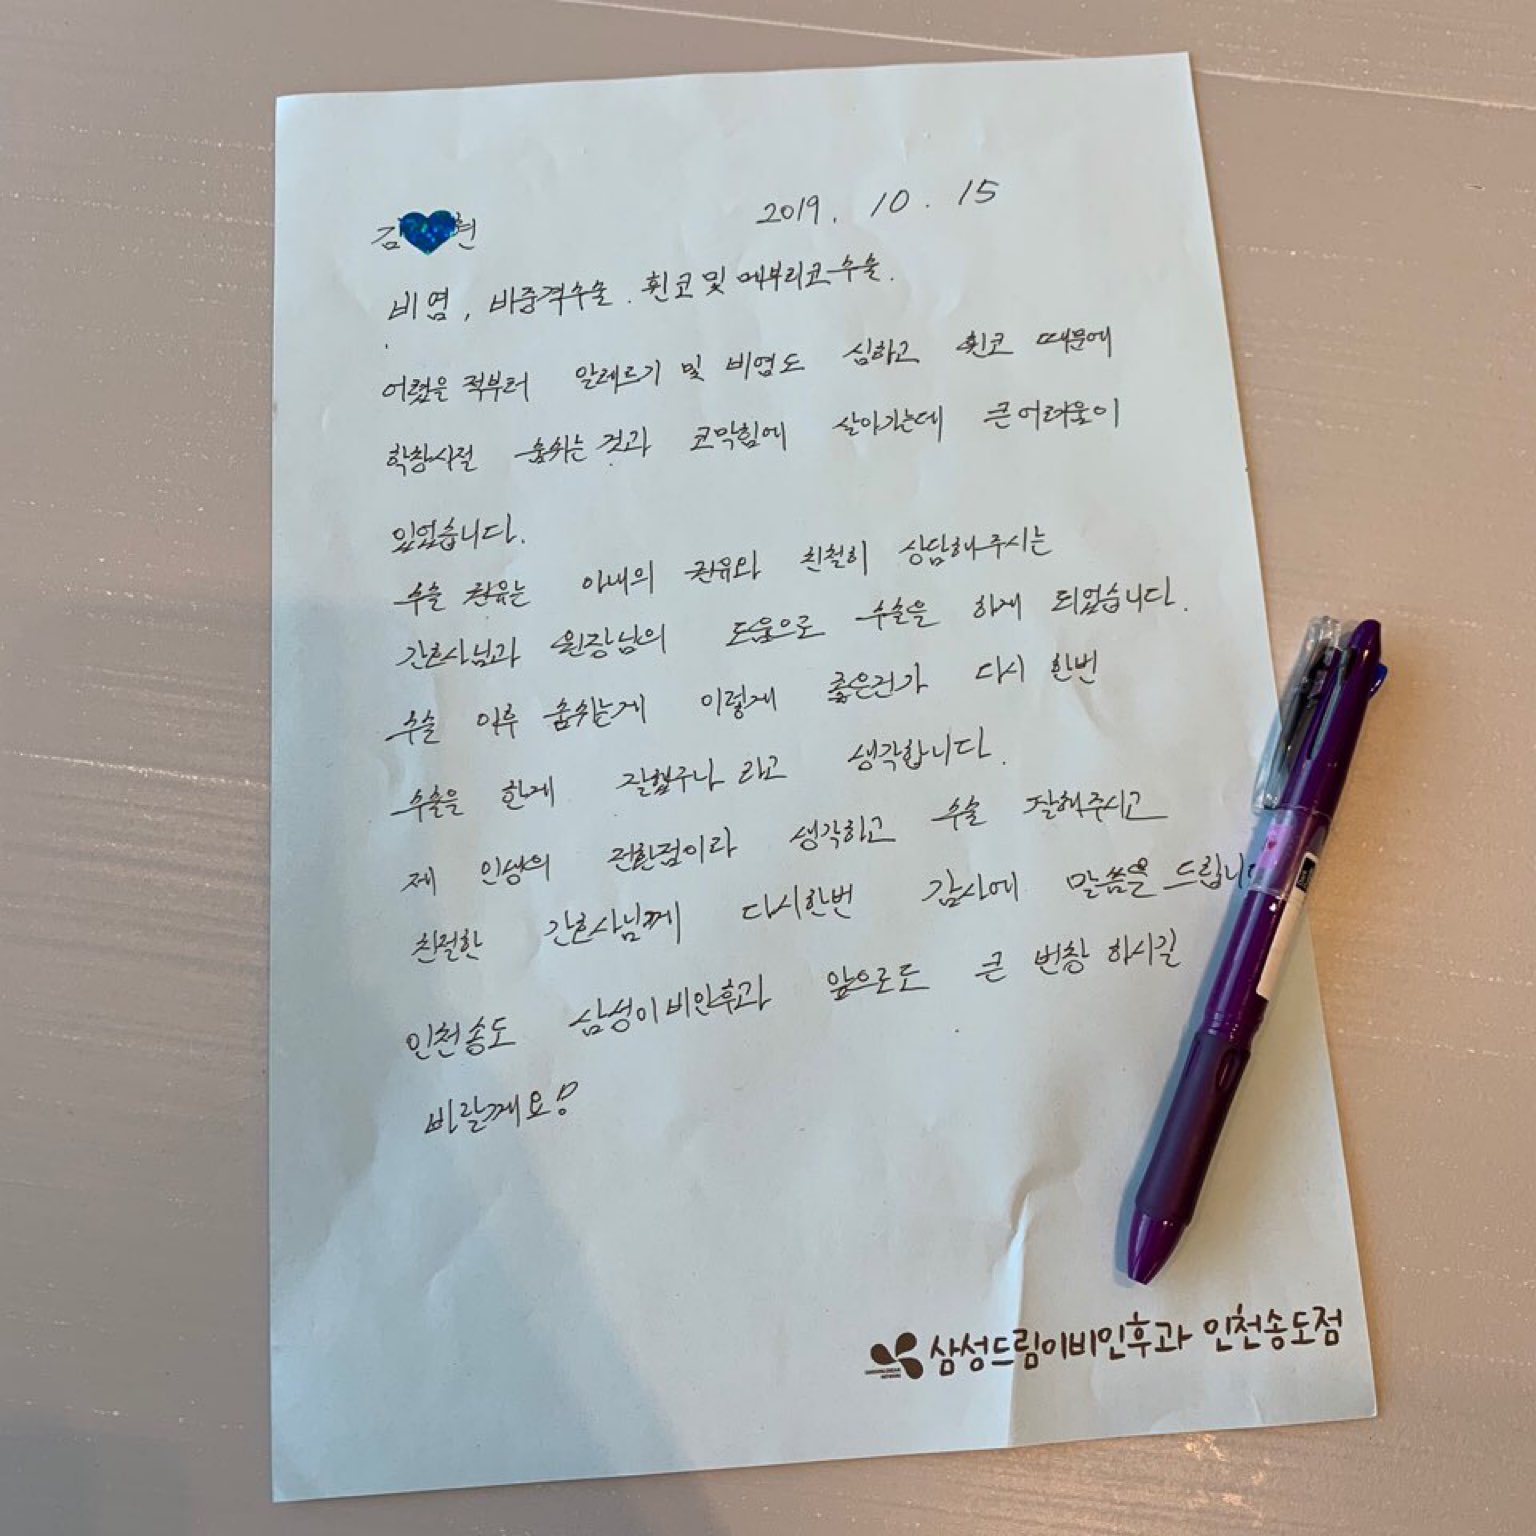 김 현
2019. 10. 15
비염, 비중격수술. 휜코 및 메부리코 수술.
어렸을 적부터 알레르기 및 비염도 심하고 휜코 때문에
학창시절 숨쉬는 것과 코막힘에 살아가는데 큰 어려움이
있었습니다.
수술 권유는 아내의 권유와 친철히 상담해주시는
간호사님과 원장님의 도움으로 수술을 하게 되었습니다.
수술 이후 숨쉬는게 이렇게 좋은건가 다시 한번
수술을 한게 잘했구나 라고 생각합니다.
제 인생의 전환점이라 생각하고 수술 잘해주시고
친절한 간호사님께 다시한번 감사에 말씀을 드립니다
인천송도 삼성이비인후과 앞으로도 큰 번창 하시길
바랄께요!
삼성드림이비인후과 인천송도점